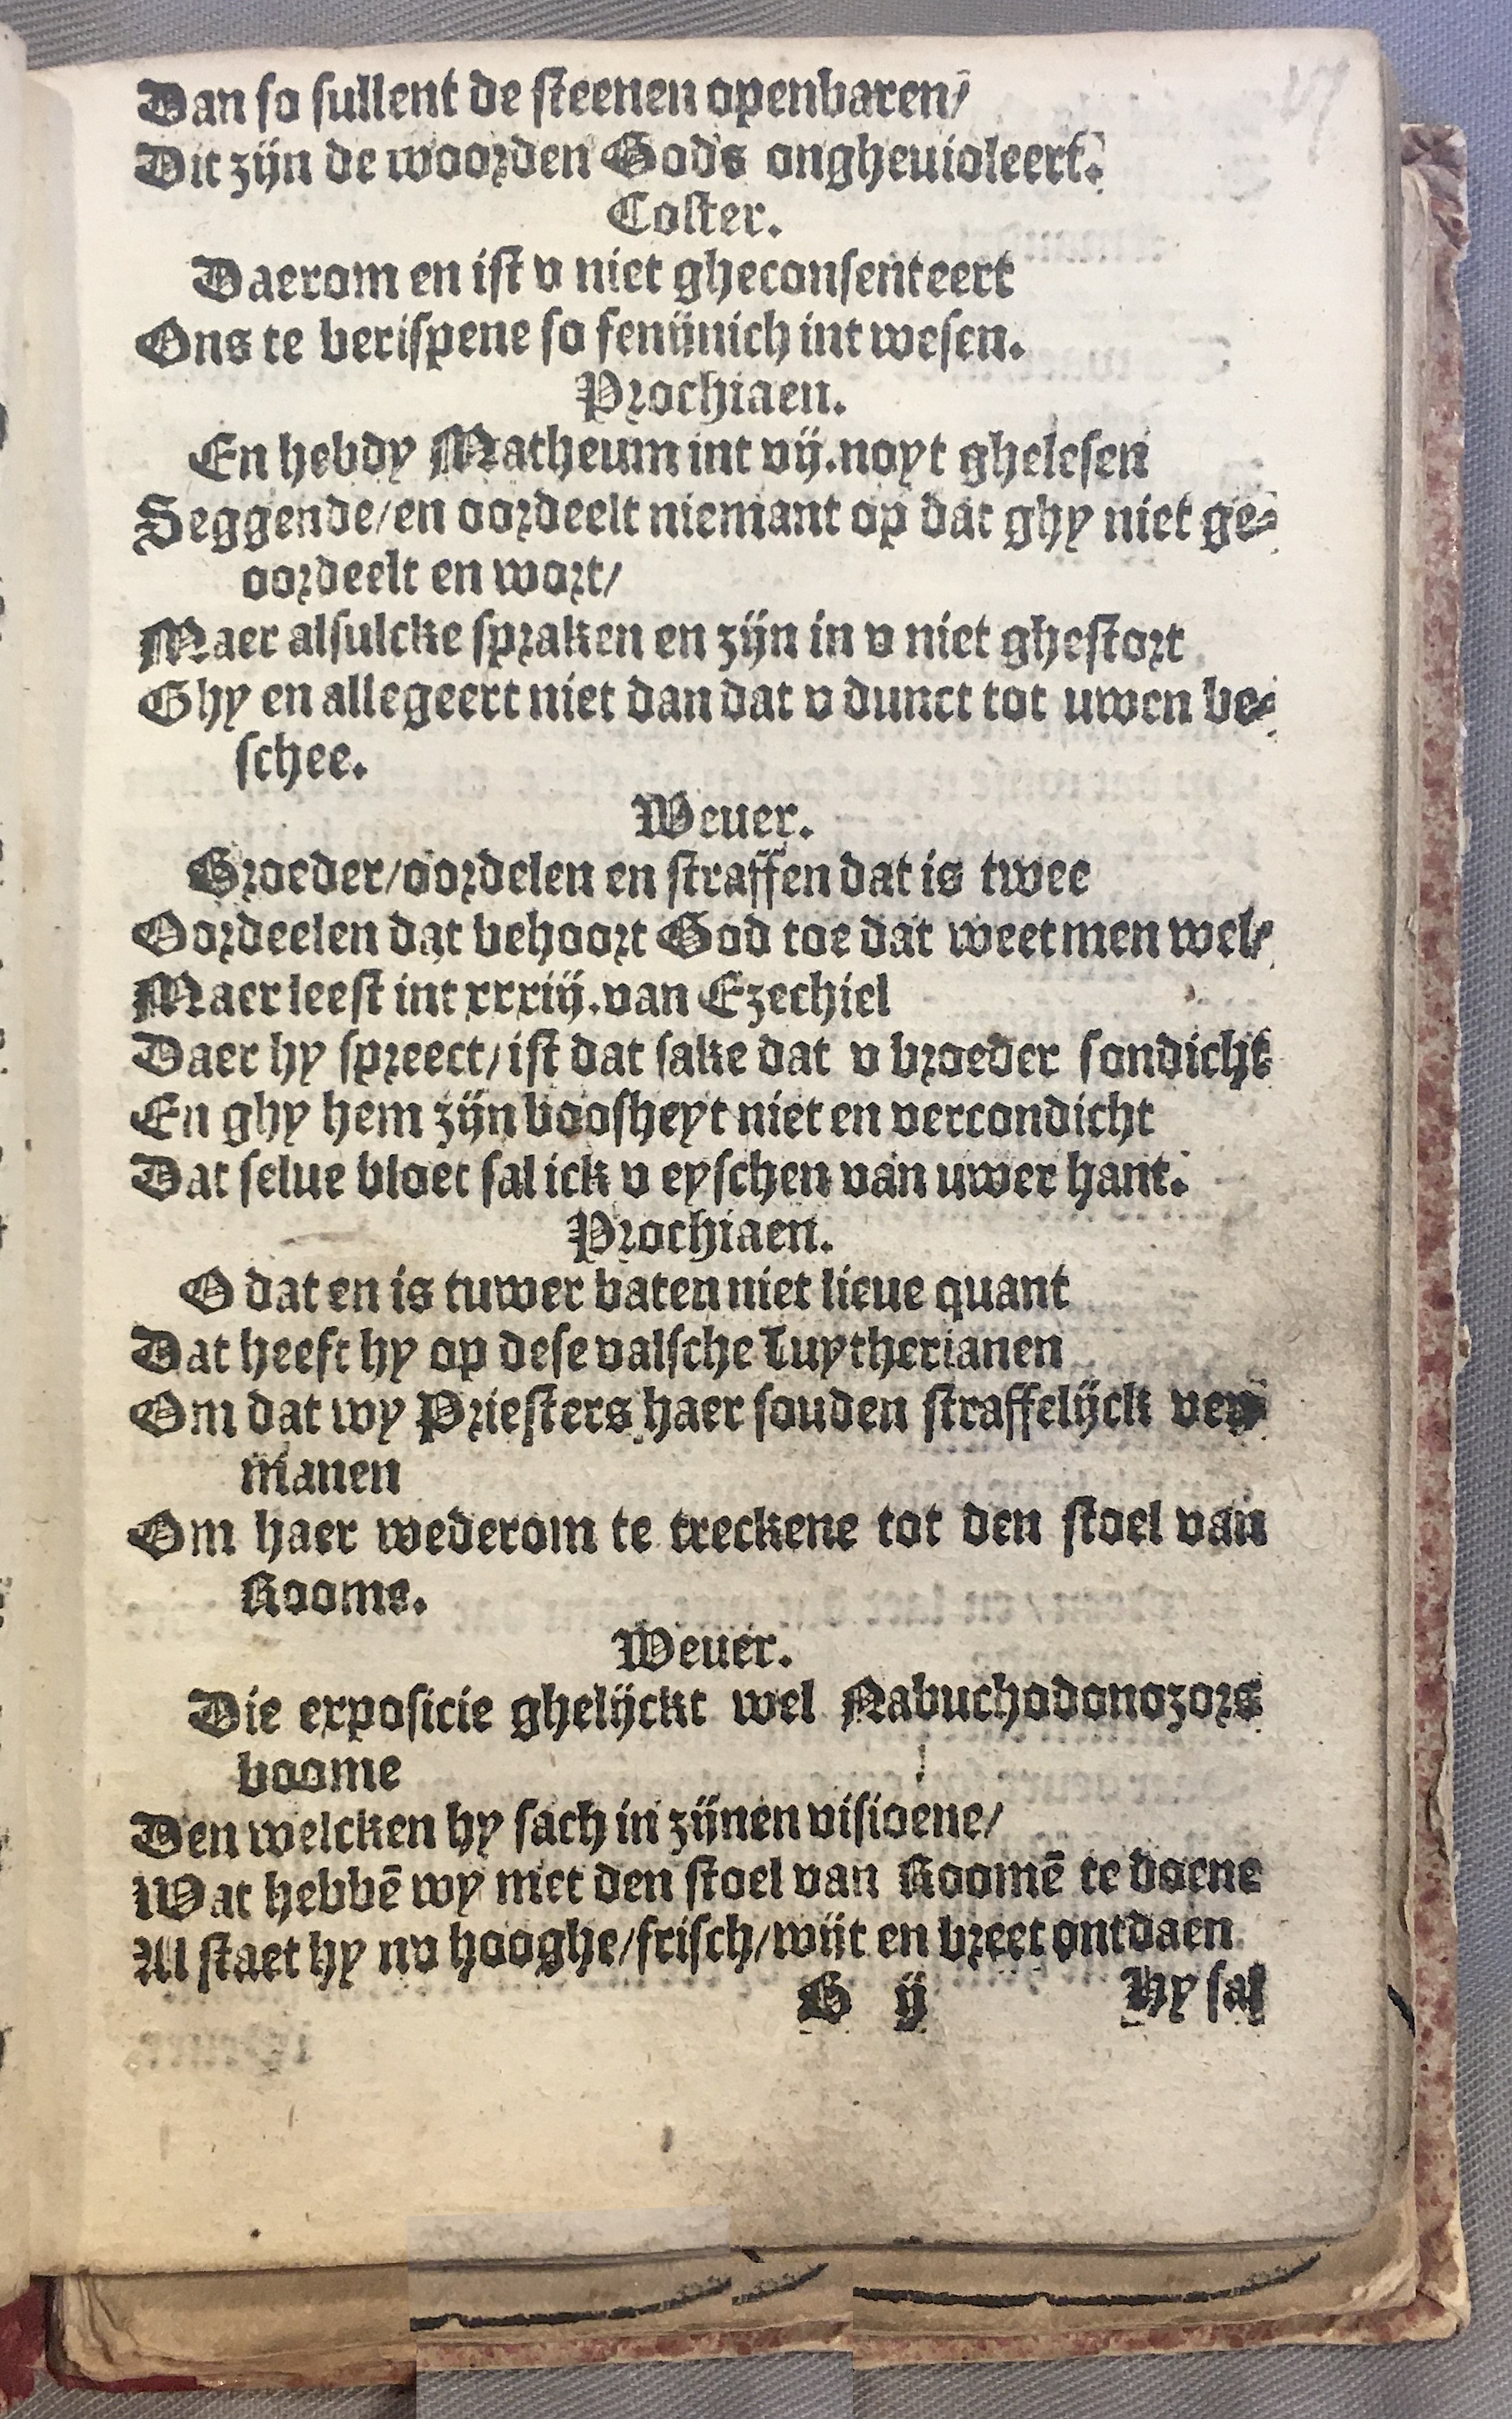 Dan so sullent de steenen openbaren/
Dit zijn de woorden Gods ongheuioleert.
Coster.
Daerom en ist v niet gheconsenteert
Ons te berispene so fenijnich int wesen.
Prochiaen.
En hebdy Matheum int vij. noyt ghelesen
Seggende/en oordeelt niemant op dat ghy niet ge-
oordeelt en wort/
Maer alsulcke spraken en zijn in v niet ghestort
Ghy en allegeert niet dan dat v dunct tot uwen be-
schee.
Weuer.
Broeder/oordelen en straffen dat is twee
Oordeelen dat behoort God toe dat weetmen wel/
Maer leest int xxxiij. van Ezechiel
Daer hy spreect/ist dat sake dat v broeder sondicht
En ghy hem zijn boosheyt niet en vercondicht
Dat selue bloet sal ick v eyschen van uwer hant.
Prochiaen.
O dat en is tuwer baten niet lieue quant
Dat heeft hy op dese valsche Luytherianen
Om dat wy Priesters haer souden straffelijck ver-
manen
Om haer wederom te treckene tot den stoel van
Roome.
Weuer.
Die exposicie ghelijckt wel Nabuchodonozors
boome
Den welcken hy sach in zijnen visioene/
Wat hebbē wy met den stoel van Roomē te doene
Al staet hy nv hooghe/frisch/wijt en breet ontdaen
G ij Hy sal